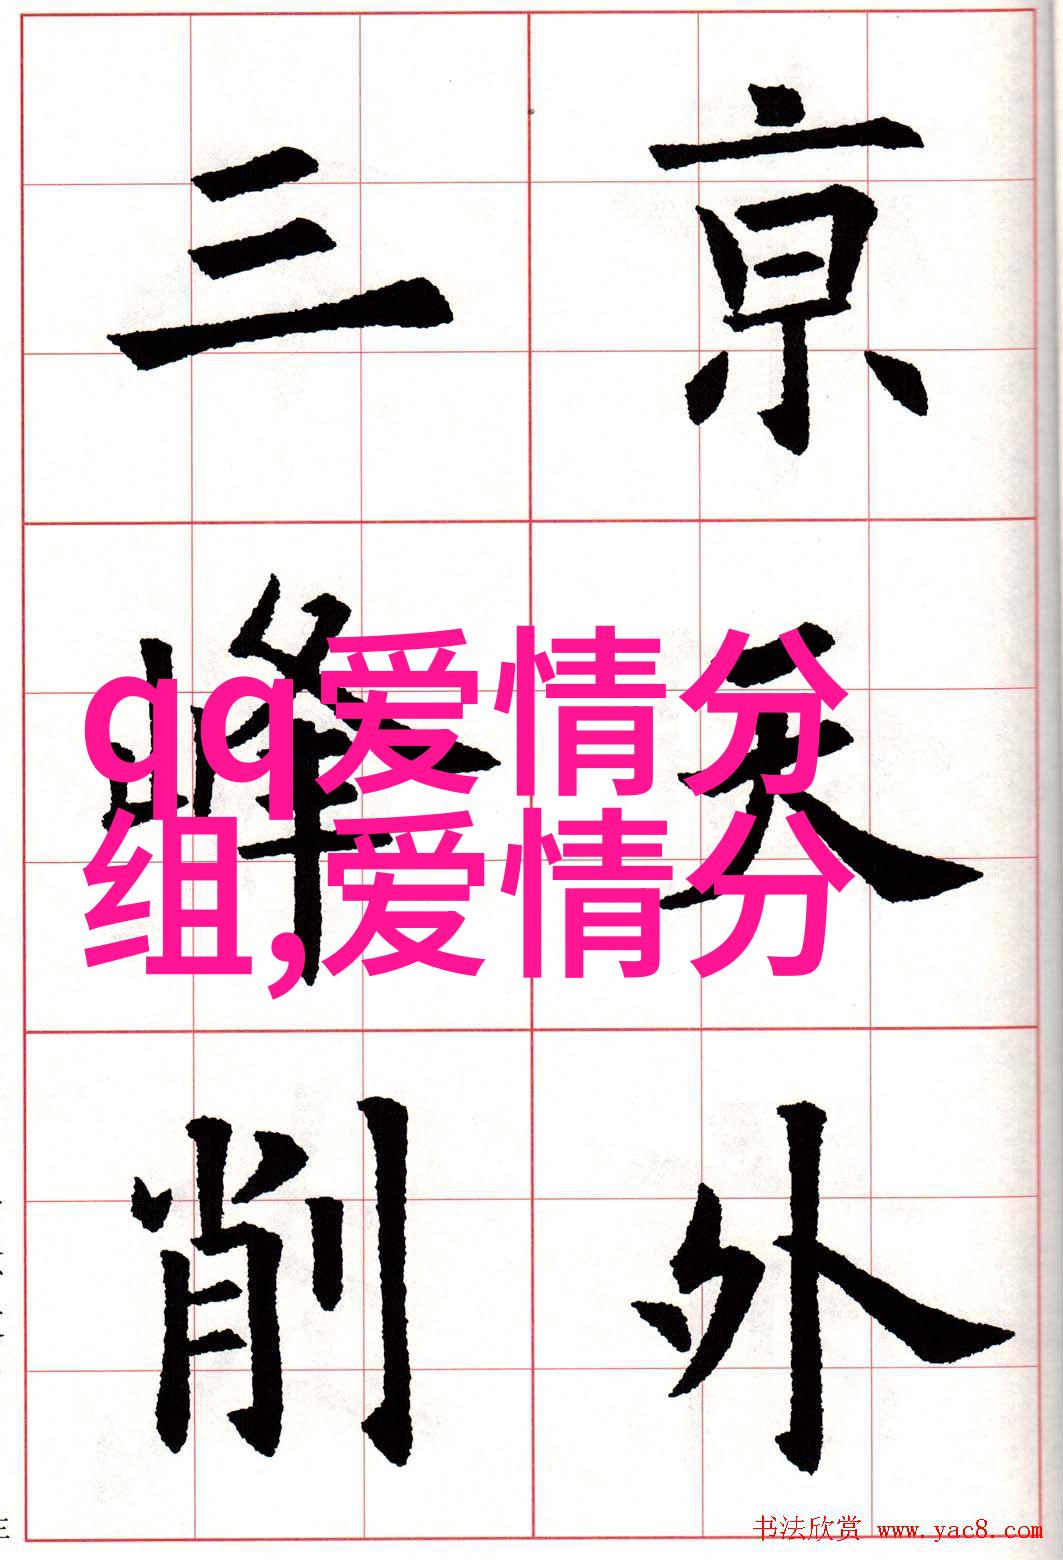 亰天外
三峰削
qq爱情分
组,爱情分
书法欣赏 www.yac8.com